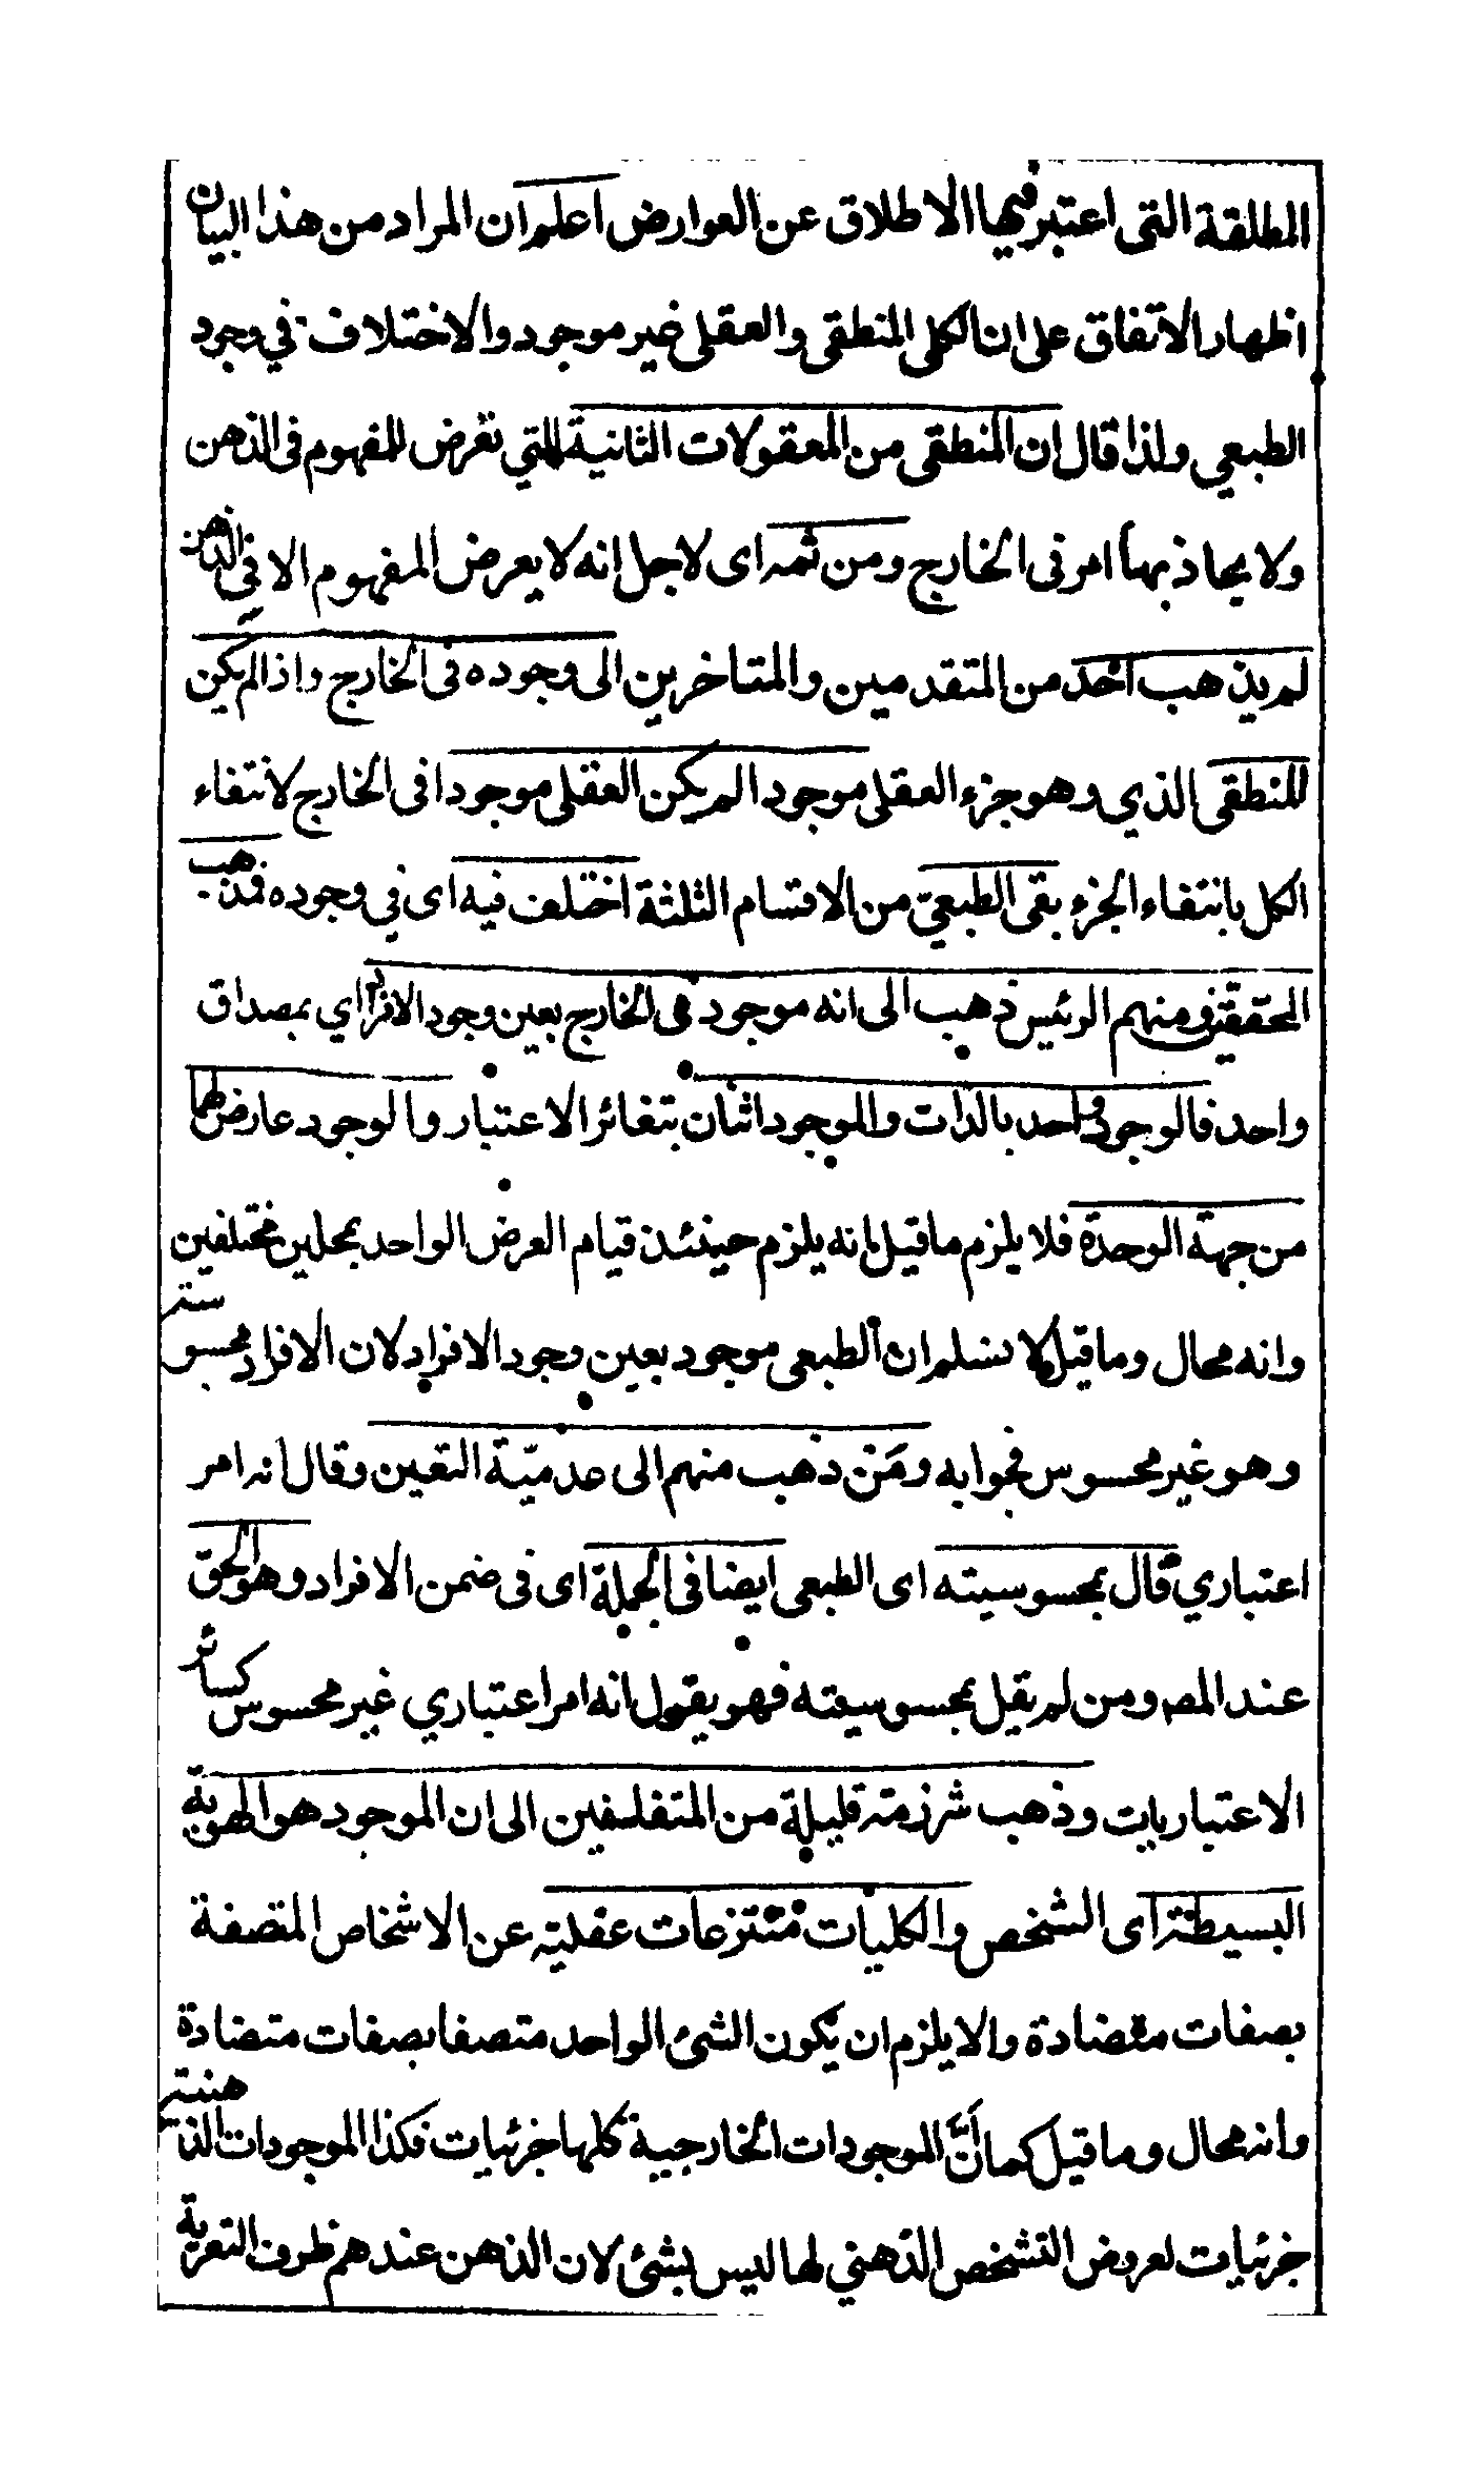 المطلقة التى اعتبر فيها الاطلاق عن العوارض اعلم ان المراد من هذا البيان
اظهار الاتفاق على ان الكلى المنطقى والعقلى غير موجود والاختلاف في وجود
الطبعي ولذا قال ان المنطقى من المعقولات الثانية التي تعرض للمفهوم فى الذهن
ولا يحاذ بها امر فى الخارج ومن ثمه اى لاجل انه لا يعرض المفهوم الا في الذهن
لم يذهب احد من المتقدمين والمتاخرين الى وجوده فى الخارج واذا لم يكن
المنطقى الذي وهو جزء العقلى موجودا لم يكن العقلى موجودا فى الخارج لانتفاء
الكل بانتفاء الجزء بقى الطبعىّ من الاقسام الثلثة اختلف فيه اى في وجوده فذهب
المحققون ومنهم الرئيس ذهب الى انه موجود فى الخارج بعين وجود الافراد اي بمصداق
واحد فالوجود واحد بالذات والموجود اثنان بتغائر الاعتبار والوجود عارض لهما
من جهة الوحدة فلا يلزم ما قيل بانه يلزم حينئذ قيام العرض الواحد بمحلين مختلفين
وانه محال وما قيل لا نسلم ان الطبعى موجود بعين وجود الافراد لان الافراد محسوسة
وهو غير محسوس فجوابه ومَن ذهب منهم الى عدميّة التعين وقال انه امر
اعتباري قال بمحسوسيته اى الطبعى ايضا فى الجملة اى فى ضمن الافراد وهو الحق
عند المصـ ومن لم يقل بمحسوسيته فهو يقول انه امر اعتباري غير محسوس كسائر
الاعتباريات وذهب شرذمة قليلة من المتفلسفين الى ان الموجود هو الهوية
البسيطة اى الشخص والكليات منتزعات عقلية عن الاشخاص المتصفة
بصفات متضادة والا يلزم ان يكون الشئ الواحد متصفا بصفات متضادة
وانه محال وما قيل كما انّ الموجودات الخارجية كلها جزئيات فكذا الموجودات الذهنية
جزئيات لعروض التشخص الذهني لها ليس بشئ لان الذهن عندهم ظرف التعرية